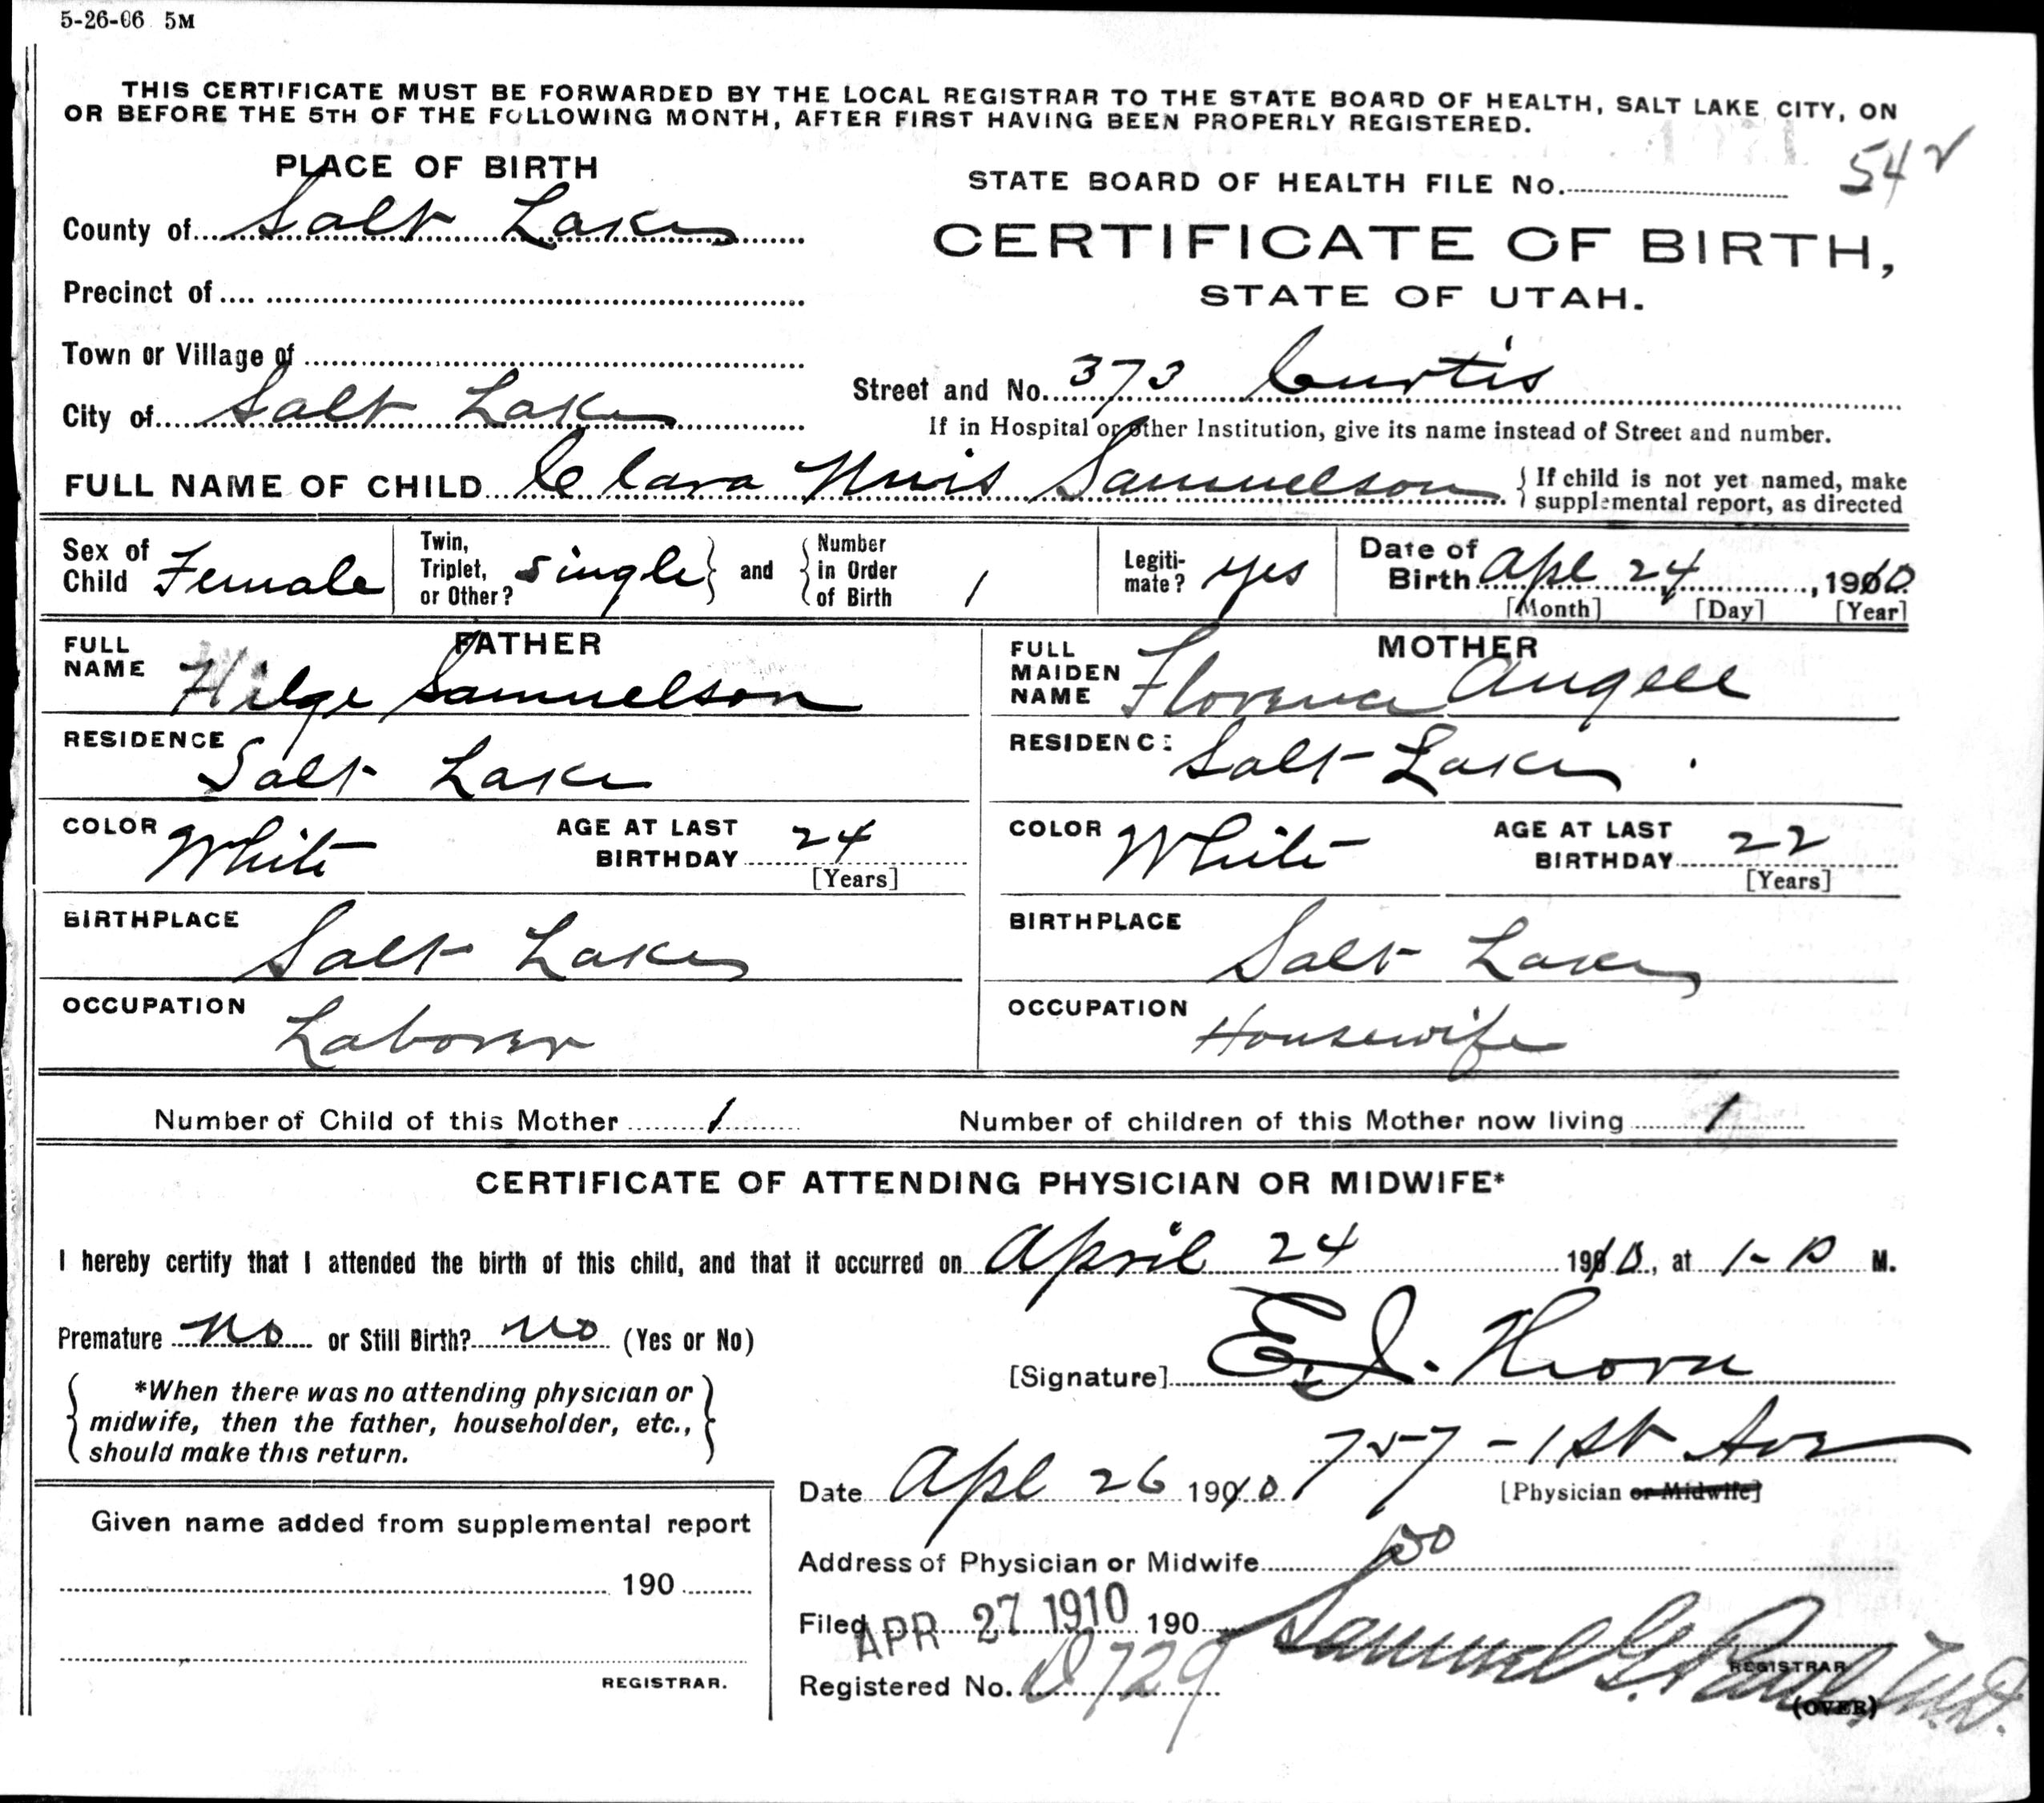 5-26-06 5M
THIS CERTIFICATE MUST BE FORWARDED BY THE LOCAL REGISTRAR TO THE STATE BOARD OF HEALTH, SALT LAKE CITY, ON
OR BEFORE THE 5TH OF THE FOLLOWING MONTH, AFTER FIRST HAVING BEEN PROPERLY REGISTERED.
PLACE OF BIRTH
STATE BOARD OF HEALTH FILE No. 542
County of Salt Lake
CERTIFICATE OF BIRTH,
STATE OF UTAH.
Precinct of
Town or Village of
Street and No. 373 Curtis
City of Salt Lake
If in Hospital or other Institution, give its name instead of Street and number.
FULL NAME OF CHILD Clara Samuelson
If child is not yet named, make
supplemental report, as directed
Sex of Child Female
Twin, Triplet, or Other? single and Number in Order of Birth 1
Legitimate? yes
Date of Birth Apl 24, 1910
[Month] [Day] [Year]
FATHER
FULL NAME Hilge Samuelson
RESIDENCE Salt Lake
COLOR White AGE AT LAST BIRTHDAY 24
[Years]
BIRTHPLACE Salt Lake
OCCUPATION Laborer
MOTHER
FULL MAIDEN NAME Florence Angell
RESIDENCE Salt Lake
COLOR White AGE AT LAST BIRTHDAY 22
[Years]
BIRTHPLACE Salt Lake
OCCUPATION Housewife
Number of Child of this Mother 1 Number of children of this Mother now living 1
CERTIFICATE OF ATTENDING PHYSICIAN OR MIDWIFE*
I hereby certify that I attended the birth of this child, and that it occurred on April 24 1910, at 1- P M.
Premature No or Still Birth? No (Yes or No)
[Signature] E. J. Thorn
*When there was no attending physician or
midwife, then the father, householder, etc.,
should make this return.
757 - 1st Ave
Date Apl 26 1910 [Physician or Midwife]
Address of Physician or Midwife Do
Given name added from supplemental report
190
REGISTRAR.
Filed APR 27 1910 190 Samuel G. Paul, M.D.
REGISTRAR
Registered No. D729
(OVER)